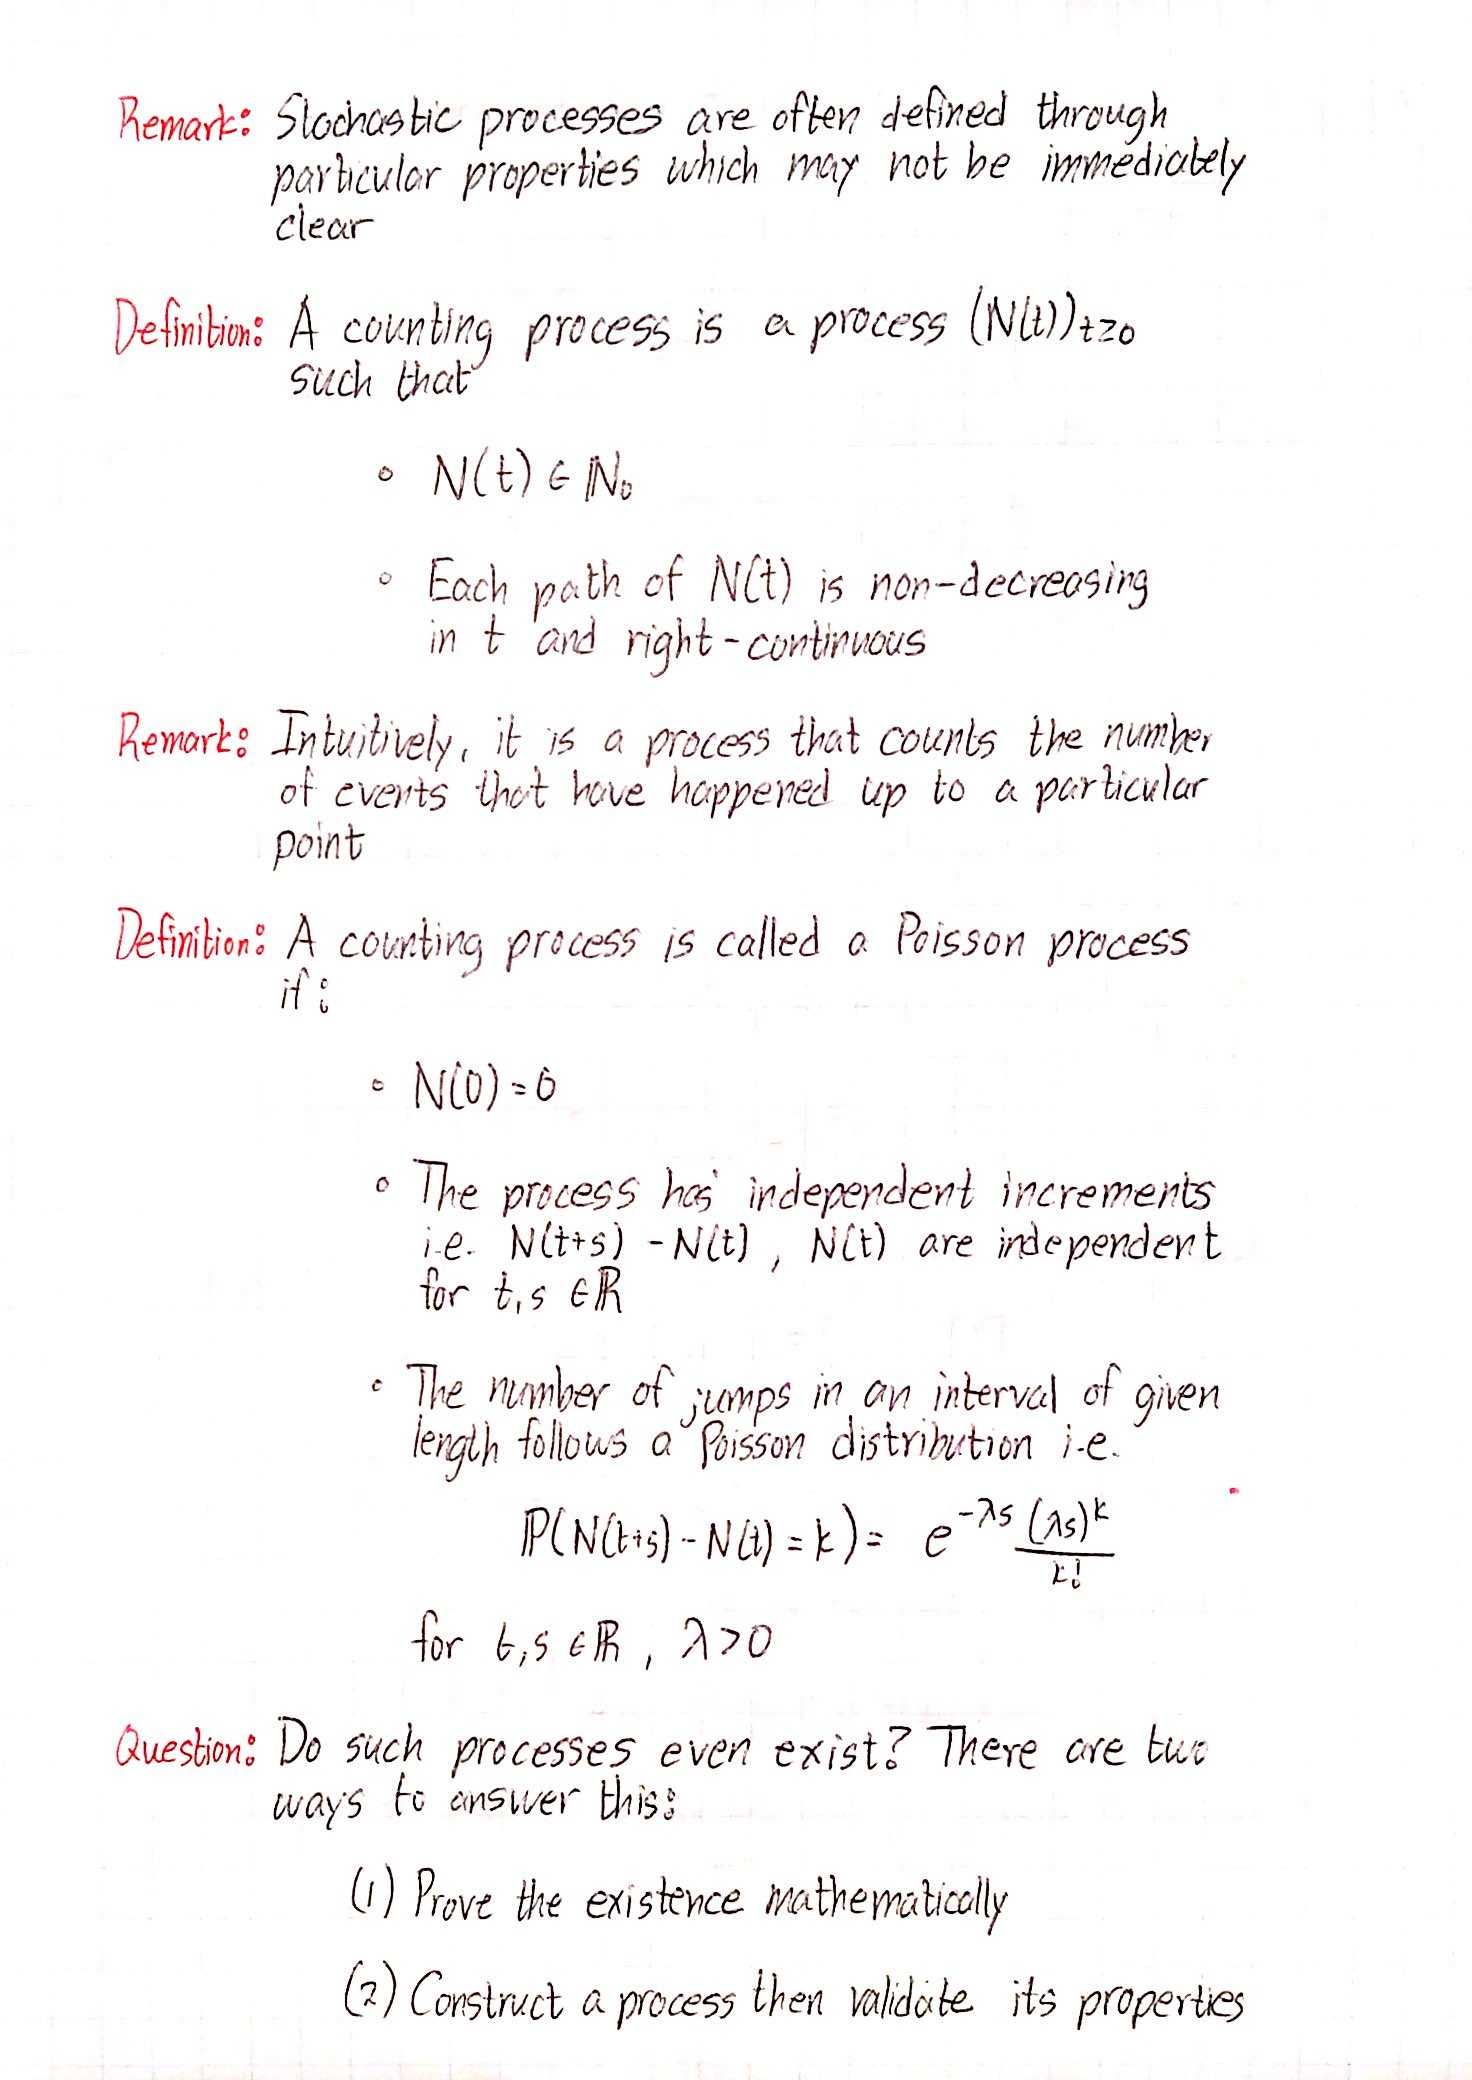 Remark: Stochastic processes are often defined through
particular properties which may not be immediately
clear
Definition: A counting process is a process (N(t))t≥0
such that
◦ N(t) ∈ ℕ₀
◦ Each path of N(t) is non-decreasing
in t and right-continuous
Remark: Intuitively, it is a process that counts the number
of events that have happened up to a particular
point
Definition: A counting process is called a Poisson process
if:
◦ N(0) = 0
◦ The process has independent increments
i.e. N(t+s) - N(t), N(t) are independent
for t,s ∈ ℝ
◦ The number of jumps in an interval of given
length follows a Poisson distribution i.e.
ℙ(N(t+s) - N(t) = k) = e^{-λs} (λs)^k / k!
for t,s ∈ ℝ, λ>0
Question: Do such processes even exist? There are two
ways to answer this:
(1) Prove the existence mathematically
(2) Construct a process then validate its properties